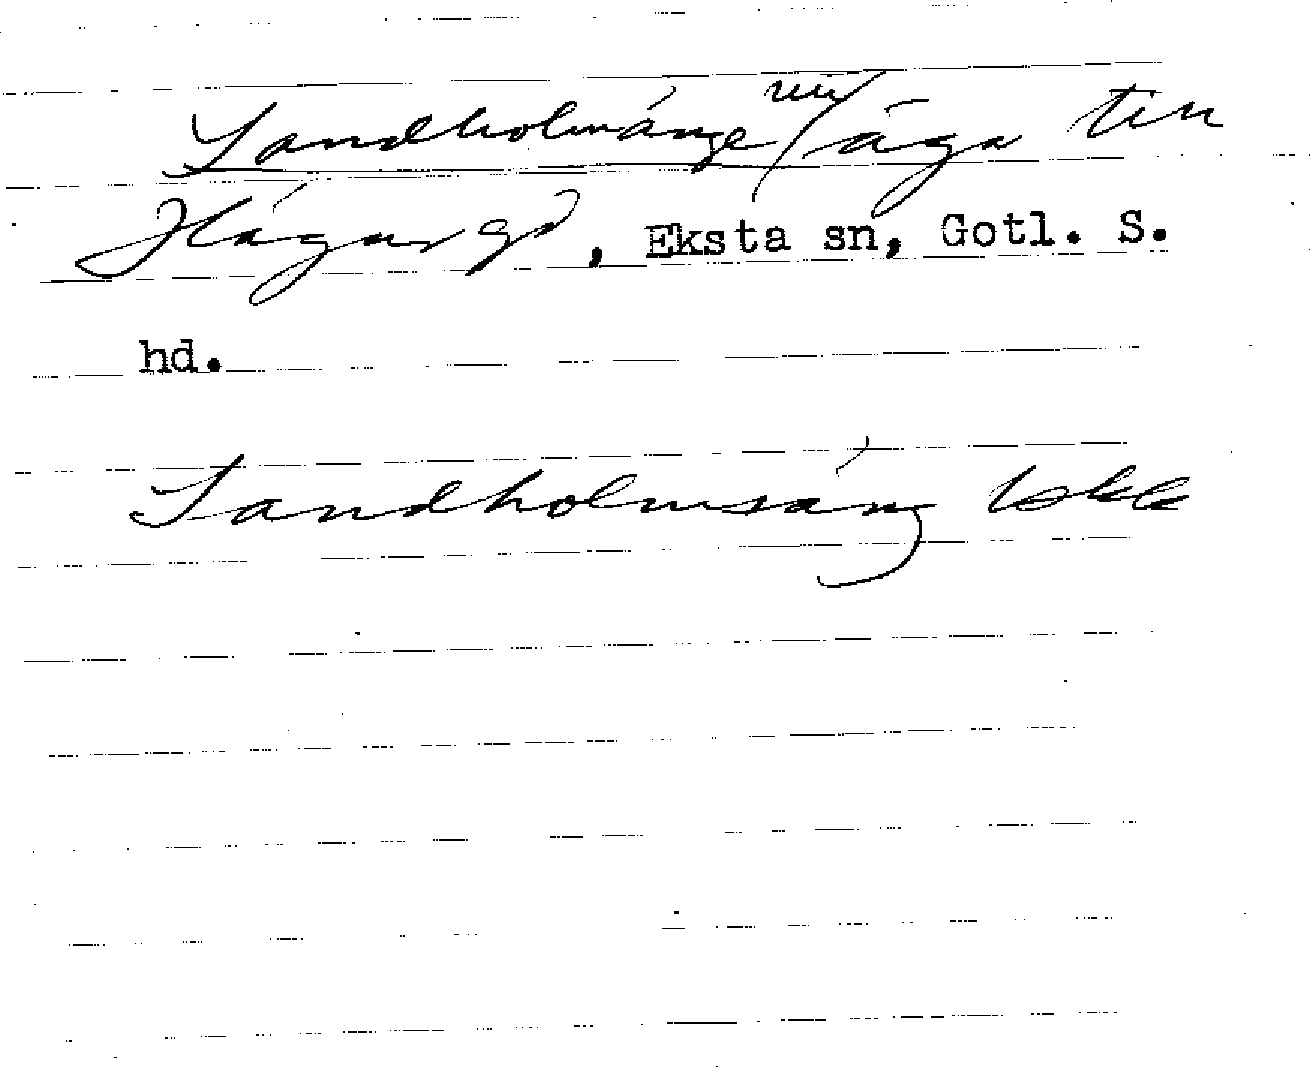 Sandholmänge / äga till
Hägur gd, Eksta sn, Gotl. S.
hd.
Sandholmsäng